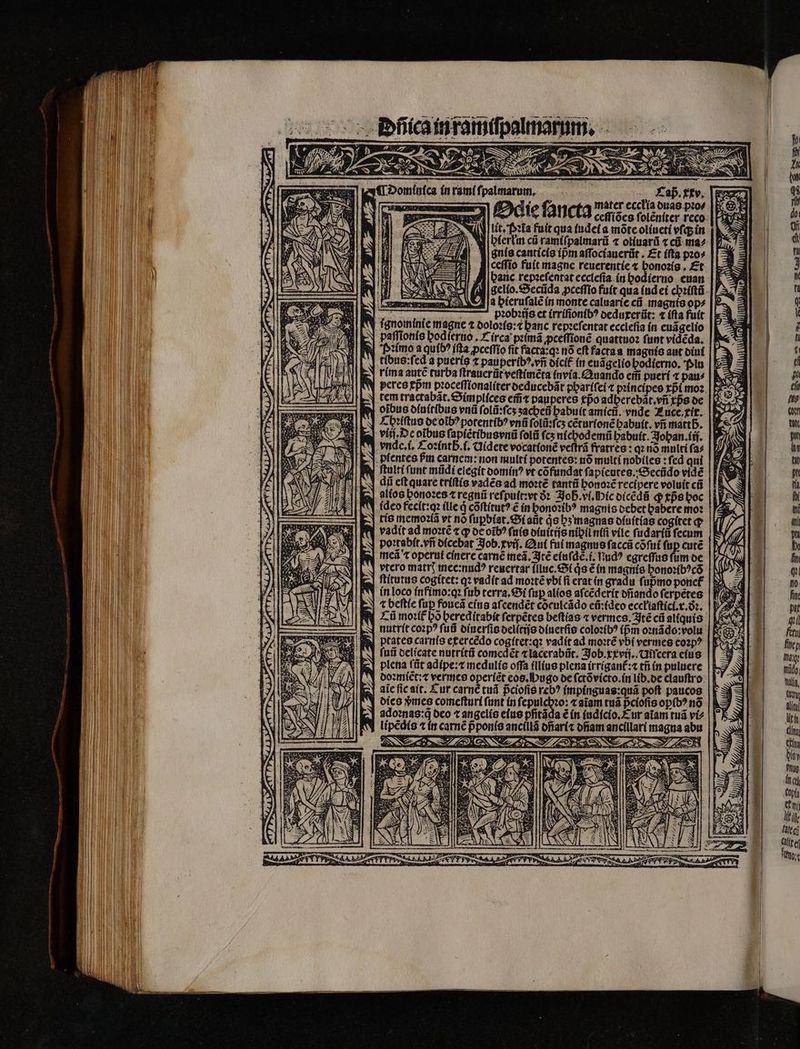 Dñica in ramiſpalmarum.
¶ Dominica in rami ſpalmarum. Cap̄. xxv.
Odie ſancta mater eccl'ia duas pro⸗
ceſſiões ſolēniter reco
lit. Pꝛĩa fuit qua iudei a mõte oliueti vſqꝫ in
hierl'm cũ ramiſpalmarũ ⁊ oliuarũ ⁊ cũ ma⸗
gnis canticis ip̄m aſſociauerũt. Et iſta pꝛo⸗
ceſſio fuit magne reuerentie ⁊ honoꝛis. Et
hanc repꝛeſentat eccleſia in hodierno euan
gelio. Secũda ꝓceſſio fuit qua iudei chꝛiſtũ
a hieruſalē in monte caluarie cũ magnis op⸗
pꝛobꝛijs et irriſionibꝰ deduxerũt: ⁊ iſta fuit
ignominie magne ⁊ doloꝛis: ⁊ hanc repꝛeſentat eccleſia in euãgelio
paſſionis hodierno. Circa pꝛimã ꝓceſſionē quattuoꝛ ſunt vidēda.
Pꝛimo a quibꝰ iſta ꝓceſſio fit facta: qꝛ nõ eſt facta a magnis aut diui
tibus: ſed a pueris ⁊ pauperibꝰ. vñ dicit̃ in euãgelio hodierno. Plu
rima autē turba ſtrauerũt veſtimēta in via. Quando em̃ pueri ⁊ pau⸗
peres xp̄m pꝛoceſſionaliter deducebãt phariſei ⁊ pꝛincipes xp̄i moꝛ
tem tractabãt. Simplices em̃ ⁊ pauperes xp̄o adherebãt. vñ xp̄s de
oībus diuitibus vnũ ſolũ: ſcꝫ zacheũ habuit amicũ. vnde Luce. xix.
Chꝛiſtus de oībꝰ potentibꝰ vnũ ſolũ: ſcꝫ cēturionē habuit. vñ matth̄.
viij. De oībus ſapiētibus vnũ ſolũ ſcꝫ nichodemũ habuit. Johan. iij.
vnde. i. Coꝛinth̄. i. Uidete vocationē veſtrã fratres: qꝛ nõ multi ſa⸗
pientes ẜm carnem: non multi potentes: nõ multi nobiles: ſed qui
ſtulti ſunt mũdi elegit dominꝰ vt cõfundat ſapientes. Secũdo vidē
dũ eſt quare triſtis vadēs ad moꝛtē tantũ honoꝛē recipere voluit cũ
alios honoꝛes ⁊ regnũ reſpuit: vt dꝛ̃ Joh̄. vi. Hic dicēdũ ꝙ xp̄s hoc
ideo fecit: qꝛ ille q̇ cõſtitutꝰ ē in honoꝛibꝰ magnis debet habere moꝛ
tis memoꝛiã vt nõ ſupbiat. Si aũt q̇s hꝫ magnas diuitias cogitet ꝙ
vadit ad moꝛtē ⁊ ꝙ de oībꝰ ſuis diuitijs nihil niſi vile ſudariũ ſecum
poꝛtabit. vñ dicebat Job. xvij. Qui fui magnus ſaccũ cõſui ſup cutē
meã ⁊ operui cinere carnē meã. Itē eiuſdē. i. Nudꝰ egreſſus ſum de
vtero matrꝭ mee: nudꝰ reuertar illuc. Si q̇s ē in magnis honoꝛibꝰ cõ
ſtitutus cogitet: qꝛ vadit ad moꝛtē vbi ſi erat in gradu ſup̄mo ponet̃
in loco infimo: qꝛ ſub terra. Si ſup alios aſcēderit dñando ſerpētes
⁊ beſtie ſup foueã eius aſcendēt cõculcãdo eũ: ideo eccl'iaſtici. x. dꝛ̃.
Cũ moꝛit̃ hõ hereditabit ſerpētes beſtias ⁊ vermes. Itē cũ aliquis
nutrit coꝛpꝰ ſuũ diuerſis delitijs diuerſis coloꝛibꝰ ip̄m oꝛnãdo: volu
ptates carnis exercēdo cogitet: qꝛ vadit ad moꝛtē vbi vermes coꝛpꝰ
ſuũ delicate nutritũ comedēt ⁊ lacerabũt. Job. xxvij. Uiſcera eius
plena ſũt adipe: ⁊ medulis oſſa illius plena irrigant̃: ⁊ tñ in puluere
doꝛmiēt: ⁊ vermes operiēt eos. Hugo de ſctõ victo. in lib. de clauſtro
aīe ſic ait. Cur carnē tuã p̄cioſis rebꝰ impinguas: quã poſt paucos
dies ṽmes comeſturi ſunt in ſepulchꝛo: ⁊ aīam tuã p̄cioſis opībꝰ nõ
adoꝛnas: q̄ deo ⁊ angelis eius p̄ſitãda ē in iudicio. Cur aīam tuã vi⸗
lipēdis ⁊ in carnē p̄ponis ancillã dñari ⁊ dñam ancillari magna abu